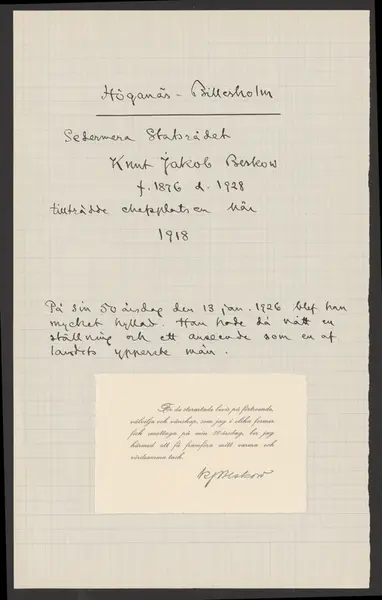 Höganäs - Billesholm
Sedermera Statsrådet
Knut Jakob Beskow
f. 1876 d. 1928
tillträdde chefplatsen här
1918
På sin 50 årsdag den 13 jan. 1926 blef han
mycket hyllad. Han hade då nått en
ställning och ett anseende som en af
landets ypperste män.
För de storartade bevis på förtroende,
välvilja och vänskap, som jag i olika former
fick mottaga på min 50-årsdag, ber jag
härmed att få framföra mitt varma och
vördsamma tack.
KJBeskow